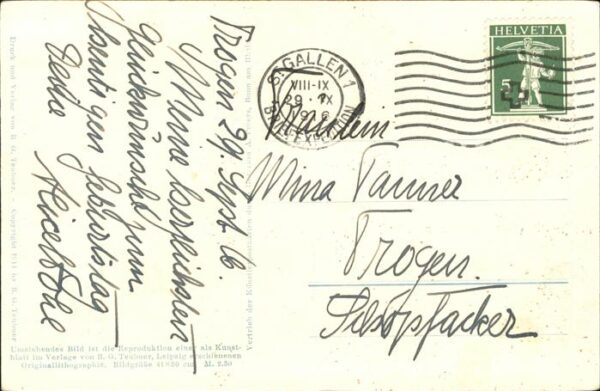 Trogen 29. Sept. 16.
Meine herzlichsten
Glückwünsche zum
heutigen Geburtstag
HELVETIA
5
ST. GALLEN 1
VIII-IX
29. IX
BRIEFEXPEDITION
Fräulein
Mina Tanner
Trogen.
Schopfacker
Druck und Verlag von B. G. Teubner,
Copyright 1911 by B. G. Teubner
Umstehendes Bild ist die Reproduktion einer als Kunst-
blatt im Verlage von B. G. Teubner, Leipzig erschienenen
Originallithographie. Bildgröße 41×30 cm M. 2.50